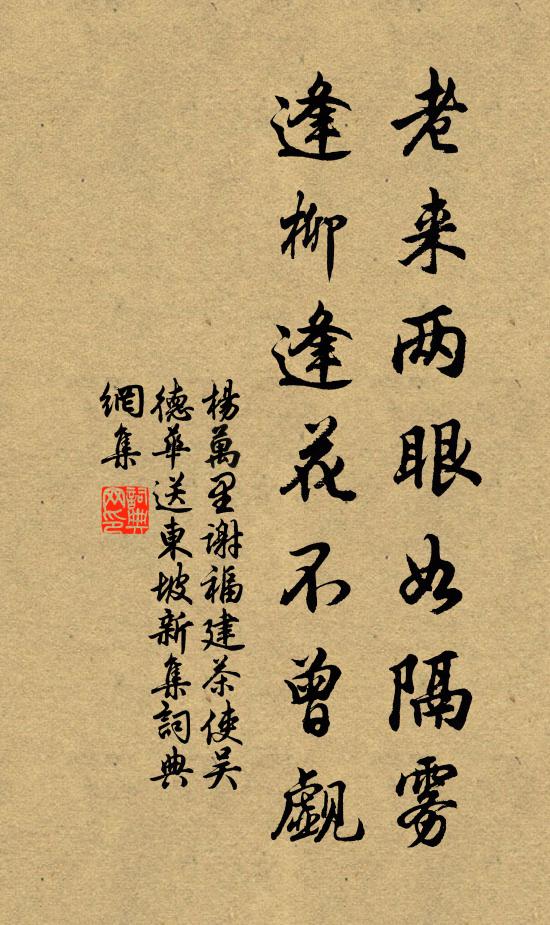 老来两眼如隔雾
逢柳逢花不曾觑
楊萬里谢福建茶使吴
德華送東坡新集詞典
網集
詞典
网印